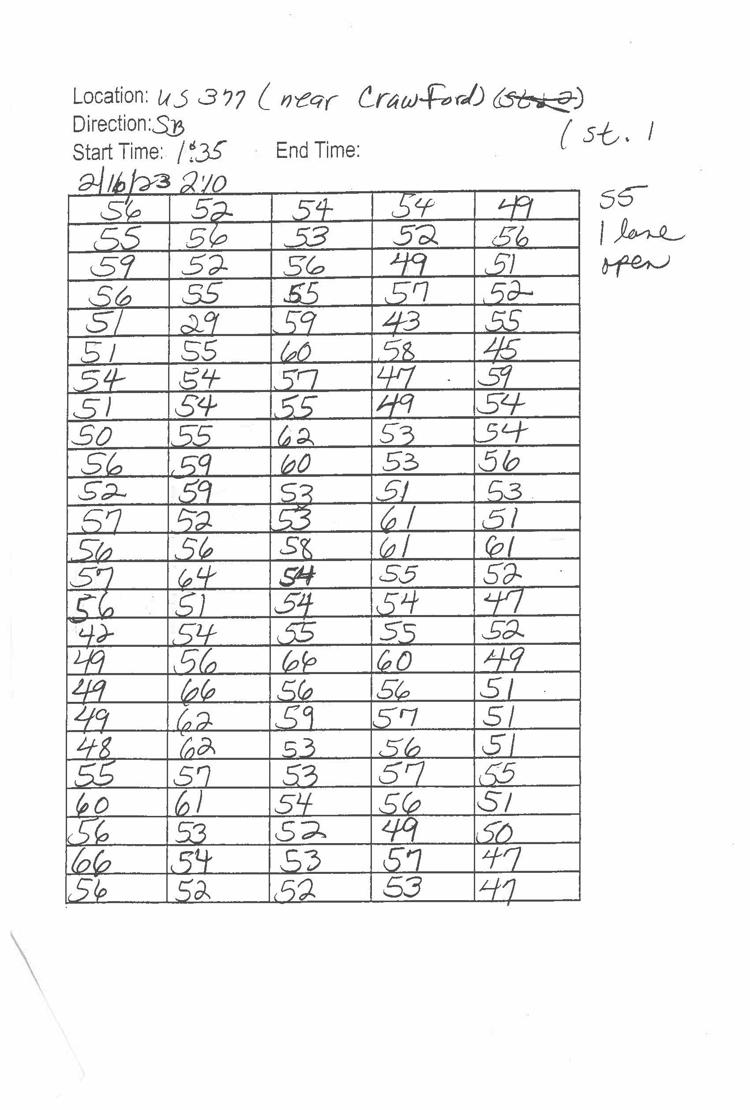 Location: US 377 (near Crawford) (st. 2)
Direction: SB
(st. 1
Start Time: 1:35 End Time:
2/16/23 2:10
56 52 54 54 49
55
55 56 53 52 56
1 lane
59 52 56 49 51
open
56 55 55 57 52
51 29 59 43 55
51 55 60 58 45
54 54 57 47 59
51 54 55 49 54
50 55 62 53 54
56 59 60 53 56
52 59 53 51 53
57 52 53 61 51
56 56 58 61 61
57 64 54 55 52
56 51 54 54 47
42 54 55 55 52
49 56 66 60 49
49 66 56 56 51
49 62 59 57 51
48 62 53 56 51
55 57 53 57 55
60 61 54 56 51
56 53 52 49 50
66 54 53 57 47
56 52 52 53 47